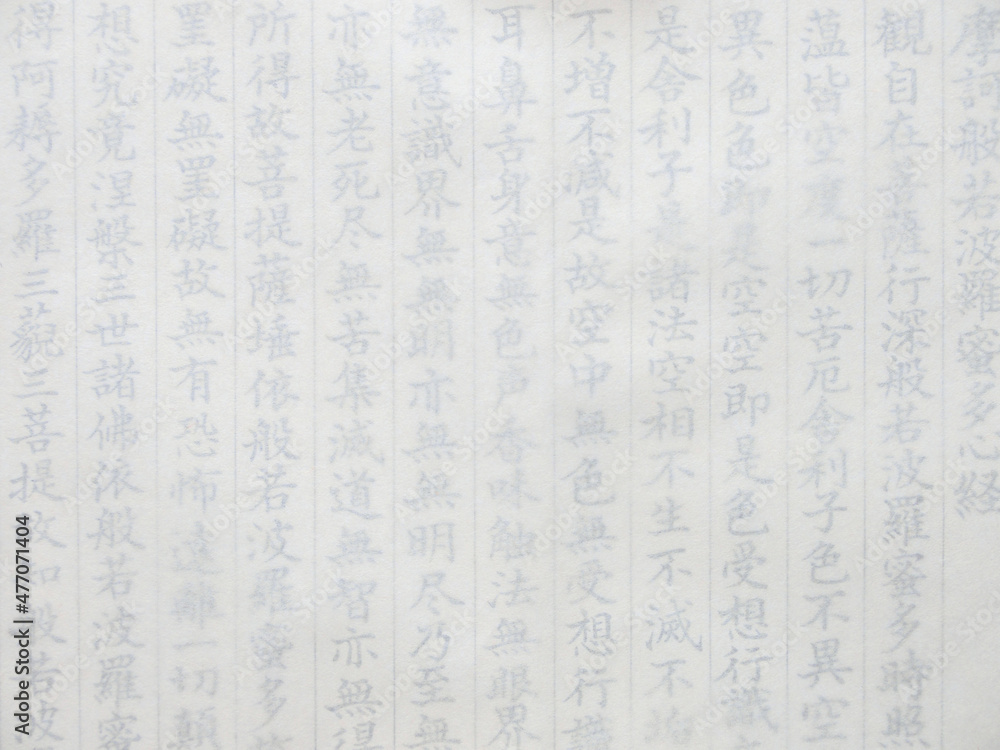 摩訶般若波羅蜜多心経
観自在菩薩行深般若波羅蜜多時照
蘊皆空度一切苦厄舎利子色不異空
異色色即是空空即是色受想行識
是舎利子是諸法空相不生不滅不垢
不増不減是故空中無色無受想行識
耳鼻舌身意無色声香味触法無眼界
無意識界無無明亦無無明尽乃至無
亦無老死尽無苦集滅道無智亦無得
所得故菩提薩埵依般若波羅蜜多故
罣礙無罣礙故無有恐怖遠離一切顛
想究竟涅槃三世諸佛依般若波羅蜜
得阿耨多羅三藐三菩提故知般若波
Adobe Stock | #477071404